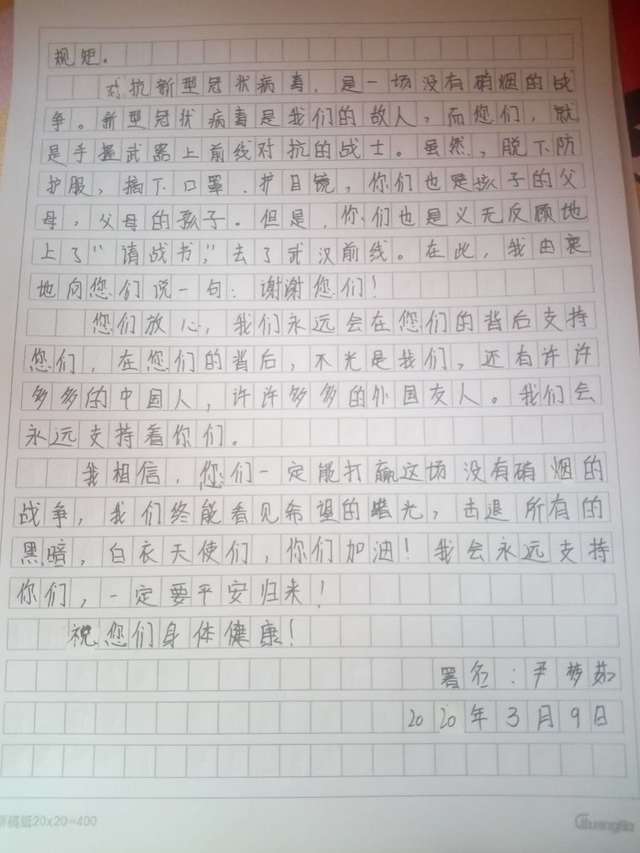 规矩。
对抗新型冠状病毒，是一场没有硝烟的战
争。新型冠状病毒是我们的敌人，而您们，就
是手握武器上前线对抗的战士。虽然，脱下防
护服，摘下口罩、护目镜，你们也是孩子的父
母，父母的孩子。但是，你们也是义无反顾地
上了“请战书”，去了武汉前线。在此，我由衷
地向您们说一句：谢谢您们！
您们放心，我们永远会在您们的背后支持
您们，在您们的背后，不光是我们，还有许许
多多的中国人，许许多多的外国友人。我们会
永远支持着你们。
我相信，你们一定能打赢这场没有硝烟的
战争，我们终能看见希望的曙光，击退所有的
黑暗，白衣天使们，你们加油！我会永远支持
你们，一定要平安归来！
祝您们身体健康！
署名：尹梦茹
2020年3月9日
稿纸20×20=400